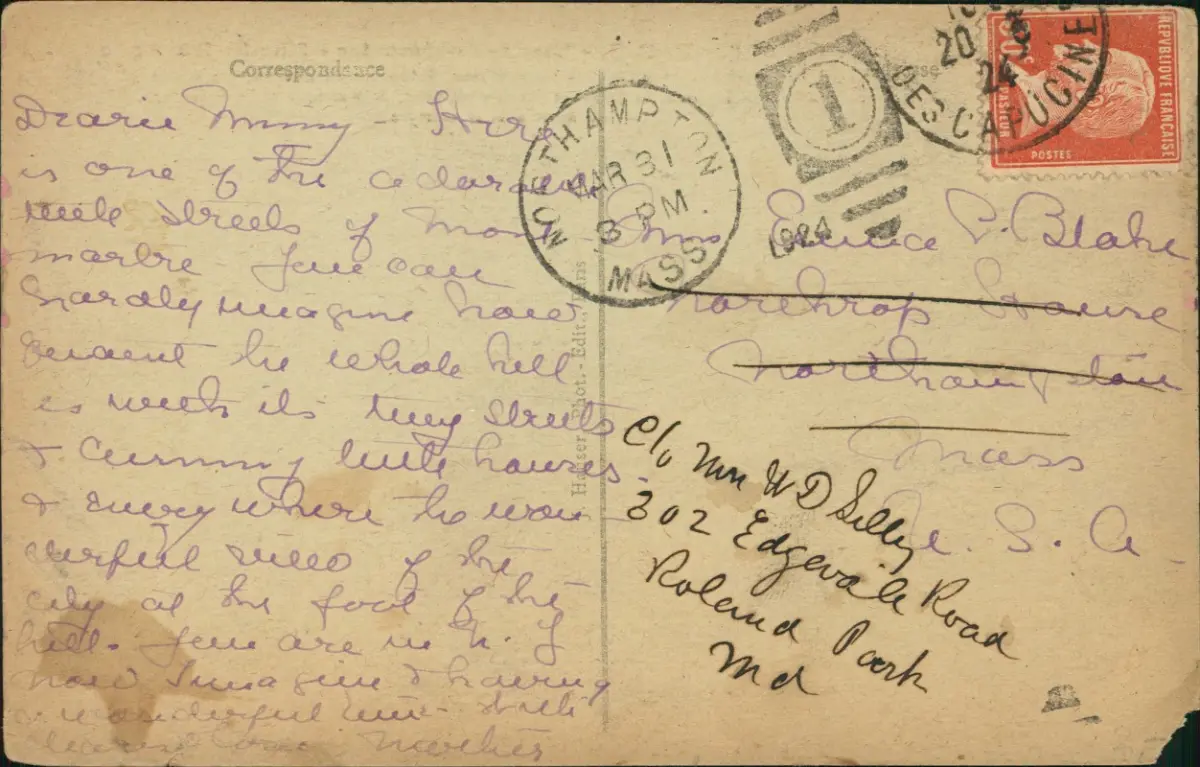 Correspondance
Dearie Mummy – Here
is one of the adorable
little streets of Mont
martre You can
hardly imagine how
quaint the whole hill
is with its tiny streets
& cunning little houses
& every where the won
derful view of the
city at the foot of the
hill. You are in N. Y
now I imagine & having
a wonderful time. With
love
Mother
Hauser, Phot.-Edit., Paris
NORTHAMPTON
MAR 31
8 PM
MASS.
1
1924
20
24
DES CAPUCINE
REPUBLIQUE FRANÇAISE
PASTEUR
POSTES
Blake
Northrop House
Northampton
Mass
U. S. A
c/o Mrs W D
302 Edgevale Road
Roland Park
Md